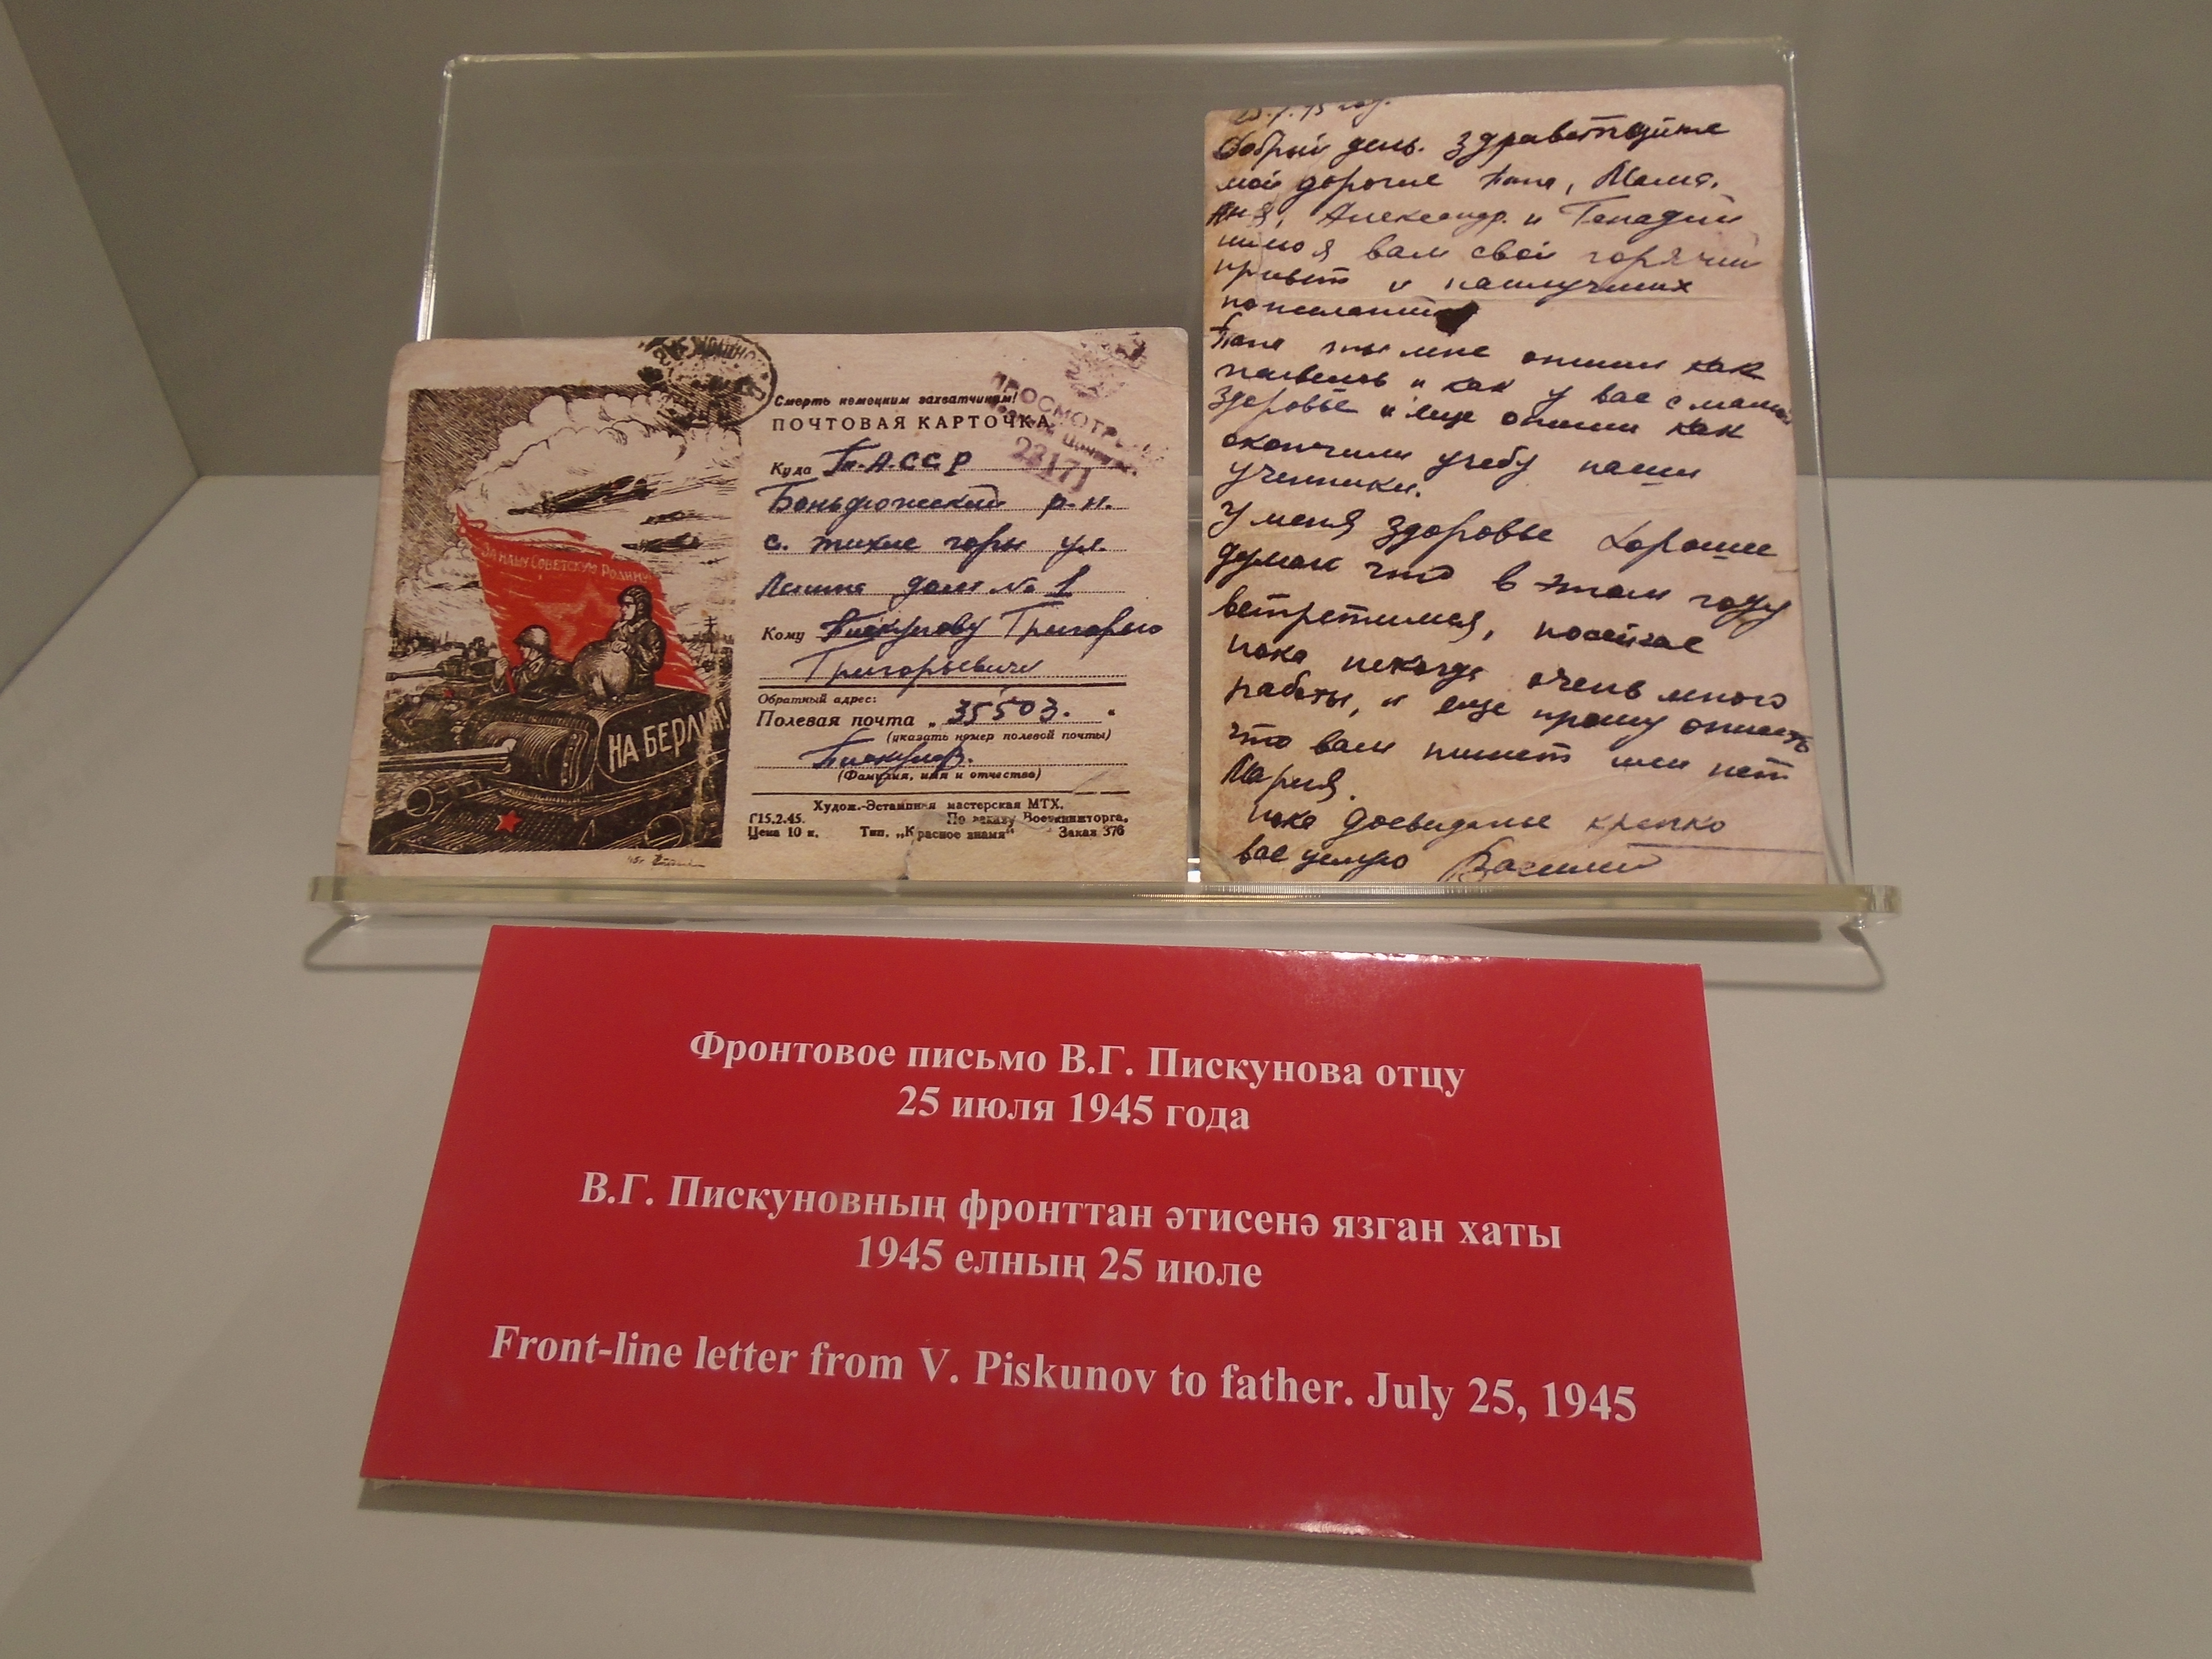 ЗА НАШУ СОВЕТСКУЮ РОДИНУ!
НА БЕРЛИН!
Смерть немецким захватчикам!
ПОЧТОВАЯ КАРТОЧКА
ПРОСМОТРЕНО
22171
Куда Т.А.ССР
Бондюжский р.н.
с. тихие горы ул.
Ленина дом № 1
Кому Пискунову Григорию
Григорьевичу
Обратный адрес:
Полевая почта „ 35503. "
(указать номер полевой почты)
Пискунов.
(Фамилия, имя и отчество)
Худож.-Эстампная мастерская МТХ.
Г15.2.45. По заказу Военкниготорга,
Цена 10 к. Тип. „Красное знамя" Заказ 376
Добрый день. здравствуйте
мои дорогие Папа, Мама.
Аня, Александр. и Генадий
шлю я вам свой горячий
привет и наилучших
Папа ты мне опиши как
живешь и как у вас с мамой
здоровье и еще опиши как
окончили учебу наши
ученики.
У меня здоровье хорошее
думаю что в этом году
встретимся,
пока некогда очень много
работы, и еще прошу описать
что вам пишет или нет
Мария.
пока досвиданье крепко
вас целую Василий
Фронтовое письмо В.Г. Пискунова отцу
25 июля 1945 года
В.Г. Пискуновның фронттан әтисенә язган хаты
1945 елның 25 июле
Front-line letter from V. Piskunov to father. July 25, 1945